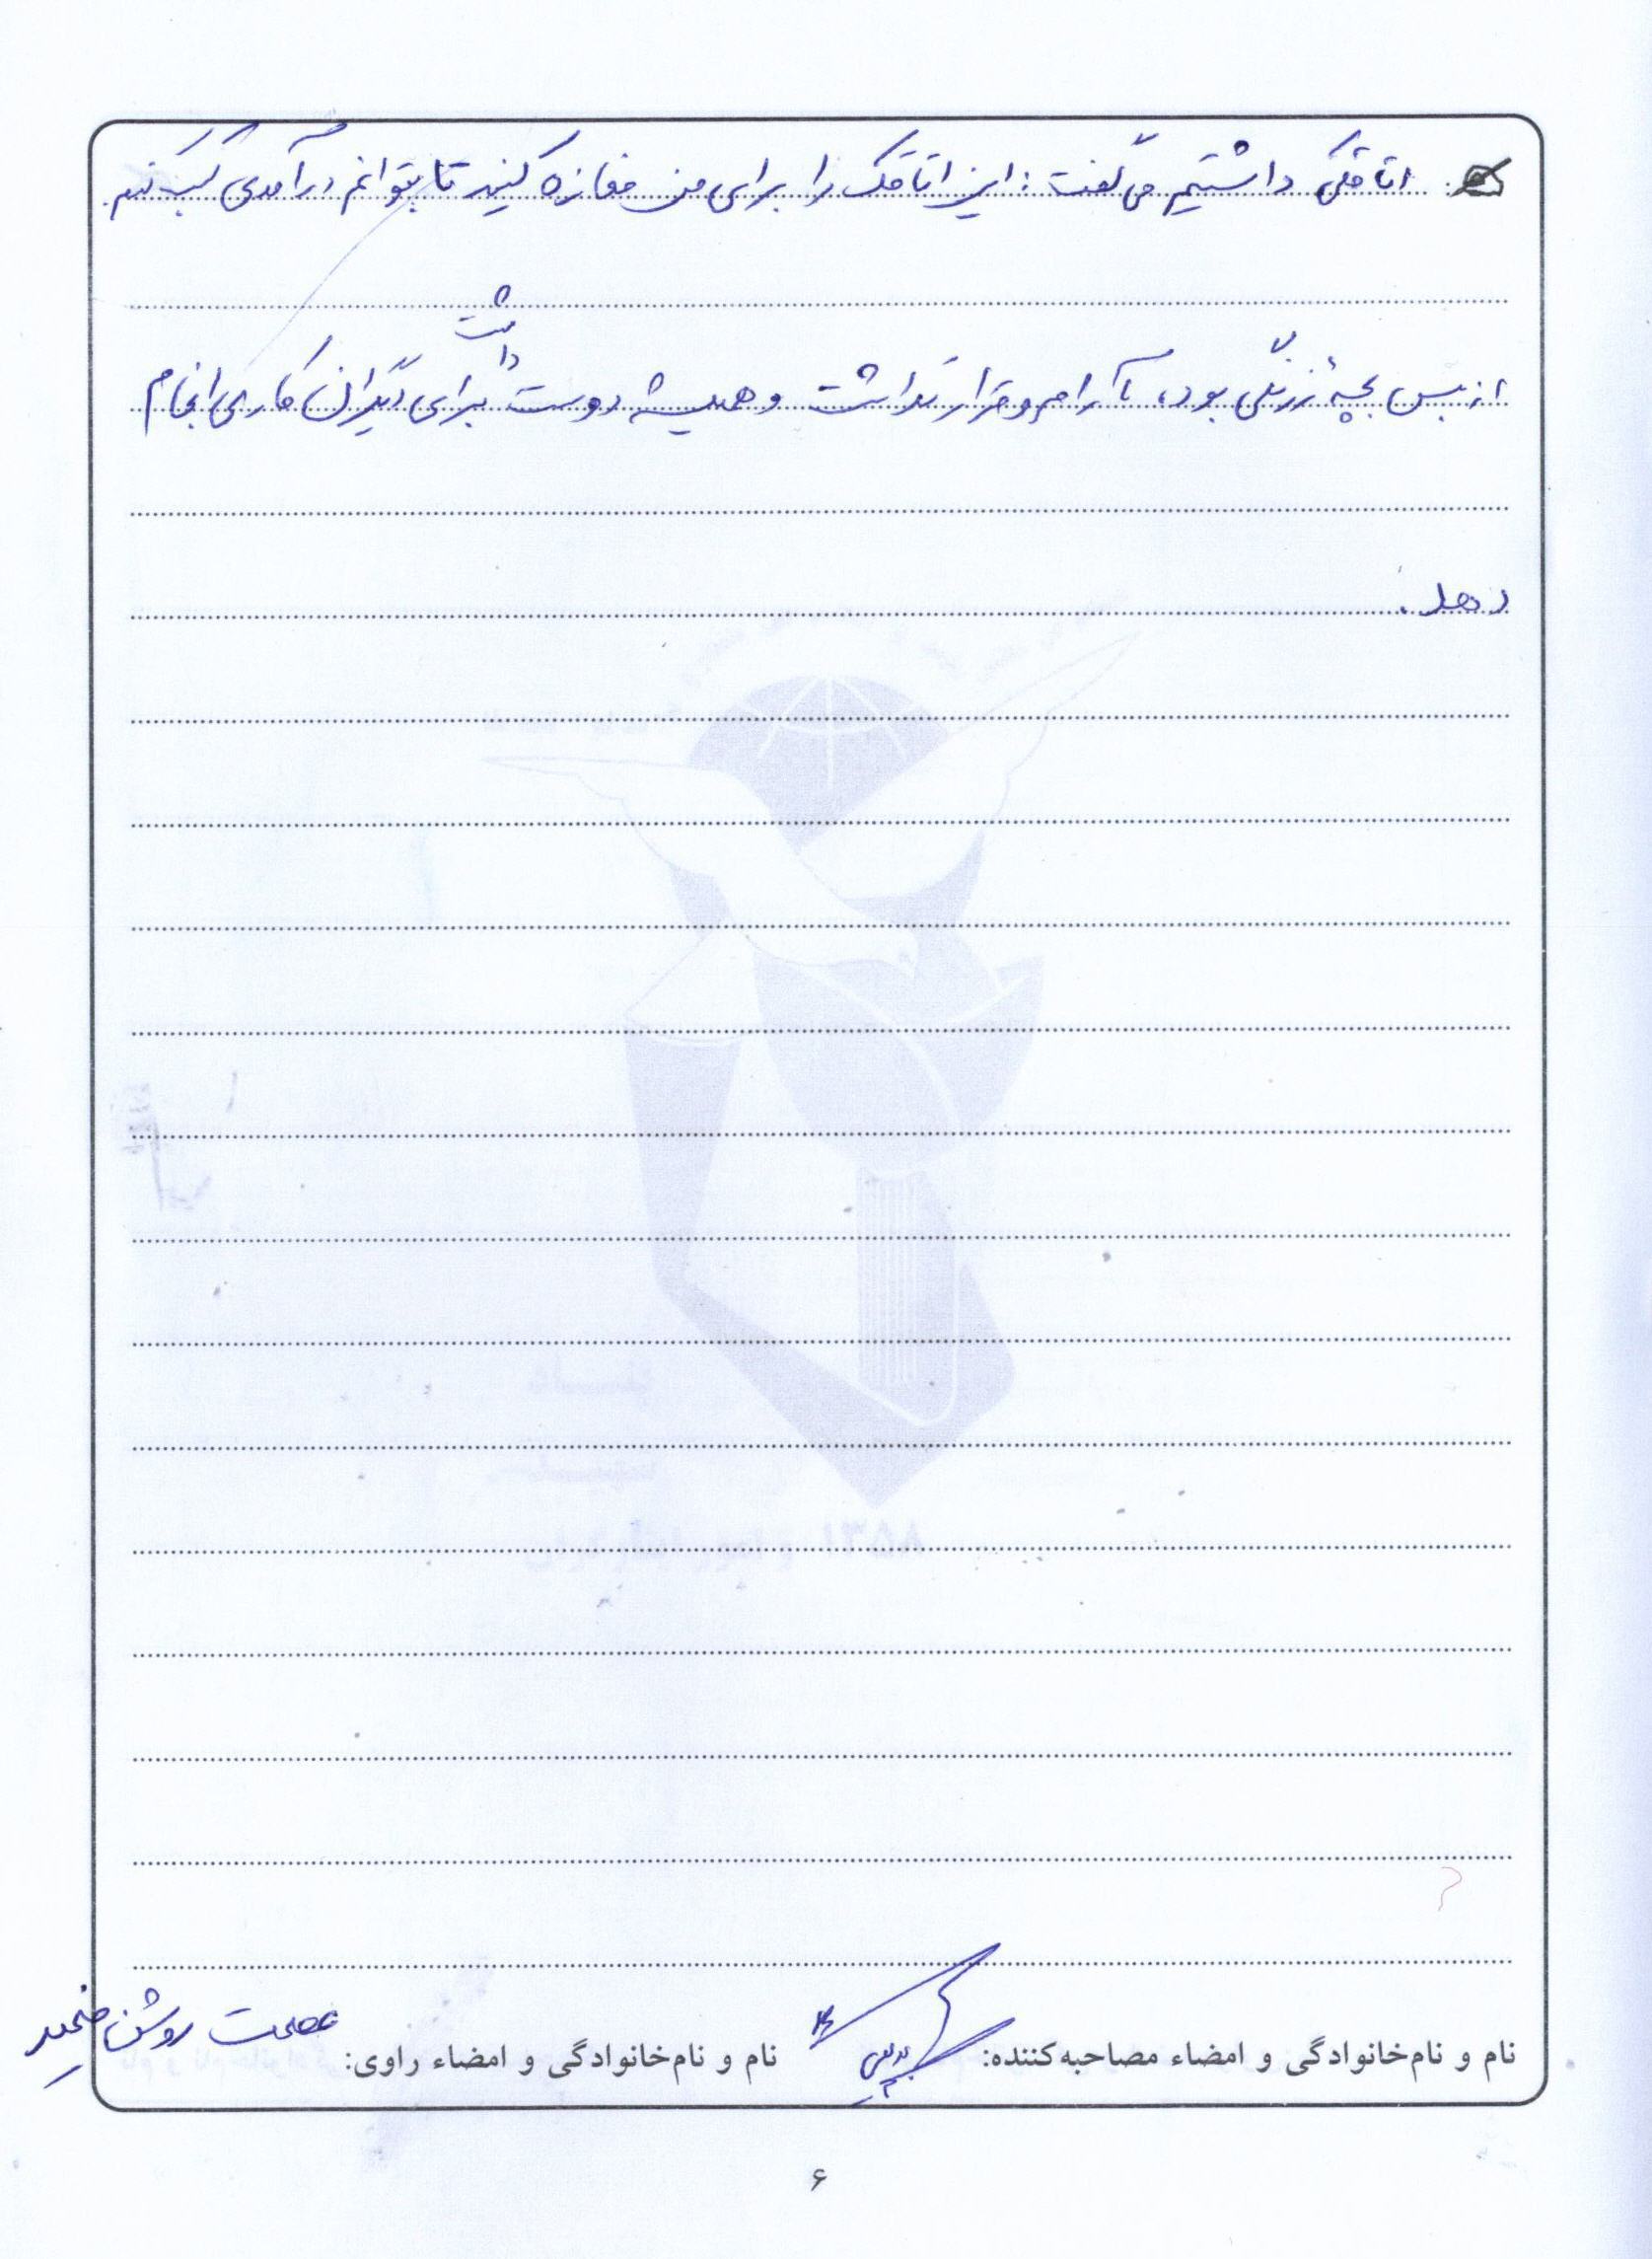 اتاقکی داشتیم می‌گفت: این اتاقک را برای من مغازه کنید تا بتوانم درآمدی کسب کنم.
از بس بچه زرنگی بود، آرام و قرار نداشت و همیشه دوست داشت برای دیگران کاری انجام
دهد.
نام و نام‌خانوادگی و امضاء مصاحبه‌کننده:
نام و نام‌خانوادگی و امضاء راوی: عصمت روشن
۶